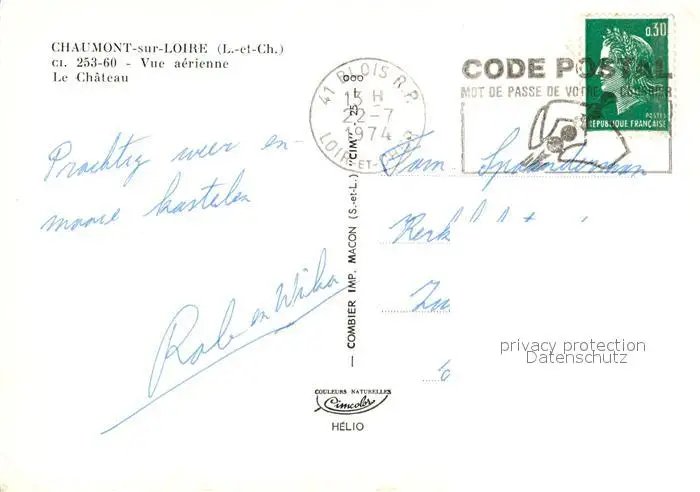 CHAUMONT-sur-LOIRE (L.-et-Ch.)
CI. 253-60 - Vue aérienne
Le Château
Prachtig weer en
mooie kastelen
Rob en Wilna
41 BLOIS R.P.
13 H
22-7
1974
LOIR-ET-CHER
CODE POSTAL
MOT DE PASSE DE VOTRE COURRIER
0,30
POSTES
REPUBLIQUE FRANÇAISE
Fam. Spaanderman
Kerk
Zu
6
— COMBIER IMP. MACON (S.-et-L.) "CIM"
COULEURS NATURELLES
Cimcolor
HÉLIO
privacy protection
Datenschutz